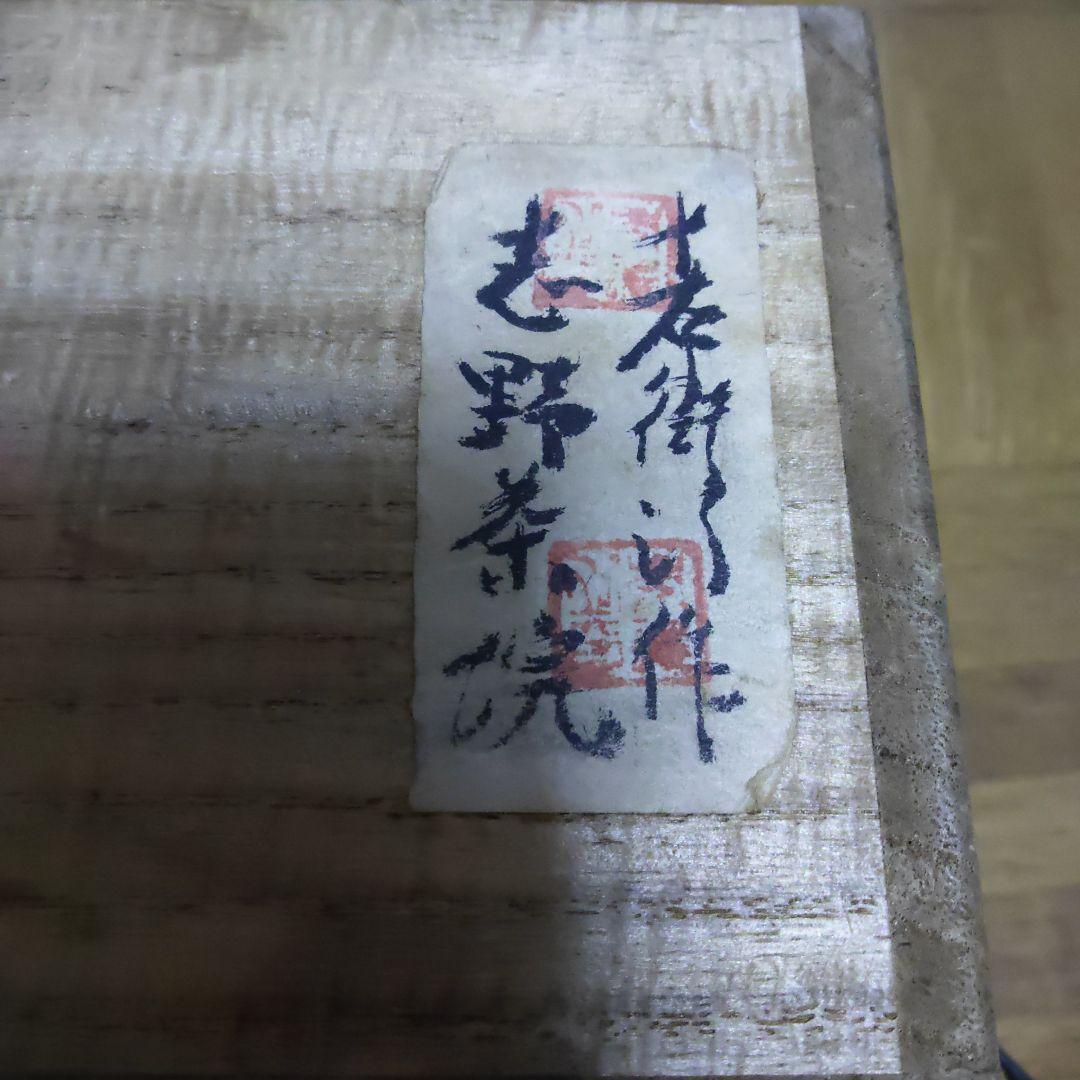 十右衛門作
志野茶碗